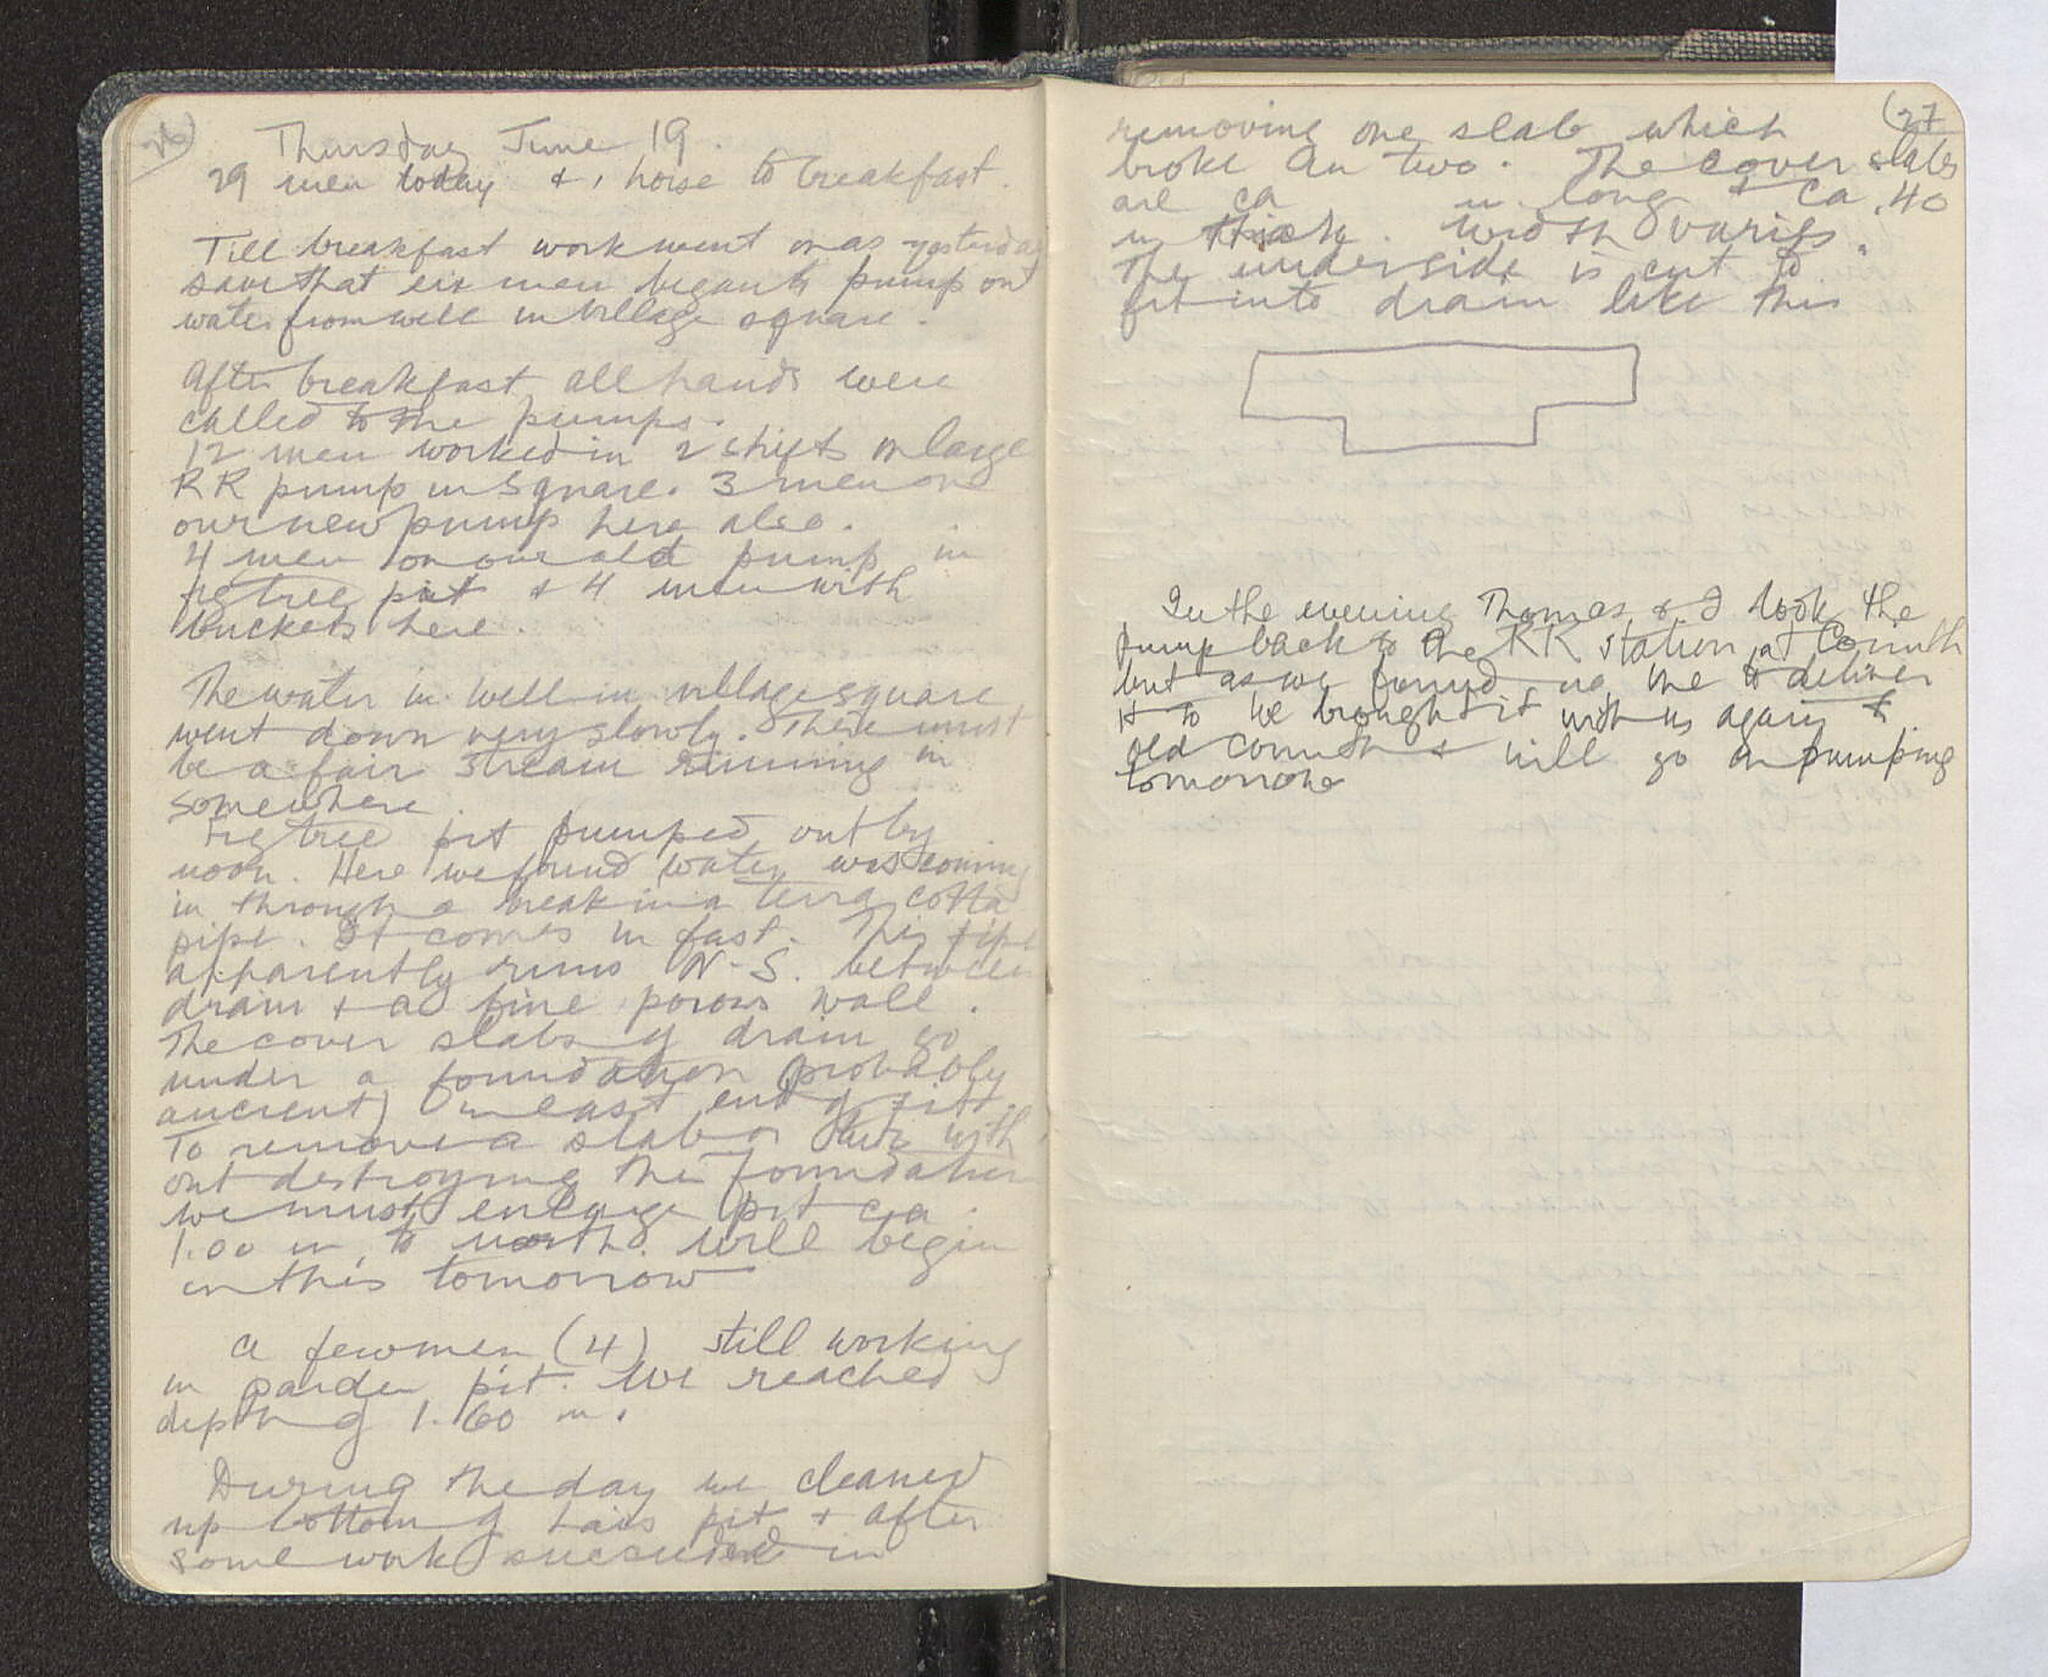 26)
Thursday June 19.
29 men today & 1 horse to breakfast.
Till breakfast work went on as yesterday
save that six men began to pump out
water from well in village square.
After breakfast all hands were
called to the pumps.
12 men worked in 2 shifts on large
RR pump in square. 3 men on
our new pump here also.
4 men on our old pump in
fig tree pit & 4 men with
buckets here.
The water in well in village square
went down very slowly. There must
be a fair stream running in
somewhere.
Fig tree pit pumped out by
noon. Here we found water was coming
in through a break in a terra cotta
pipe. It comes in fast. This pipe
apparently runs N-S. between
drain & a fine poros wall.
The cover slabs of drain go
under a foundation (probably
ancient) in east end of pit.
To remove a slab or two with
out destroying the foundation
we must enlarge pit ca.
1.00 m. to north. Will begin
on this tomorrow
A few men (4) still working
in garden pit. We reached
depth of 1.60 m.
During the day we cleaned
up bottom of pit & after
some work succeeded in
(27
removing one slab which
broke in two. The cover slabs
are ca m. long & ca .40
m thick. Width varies.
The underside is cut to
fit into drain like this
In the evening Thomas & I took the
pump back to the RR station at Corinth
but as we found no one to deliver
it to we brought it with us again to
Old Corinth & will go on pumping
tomorrow